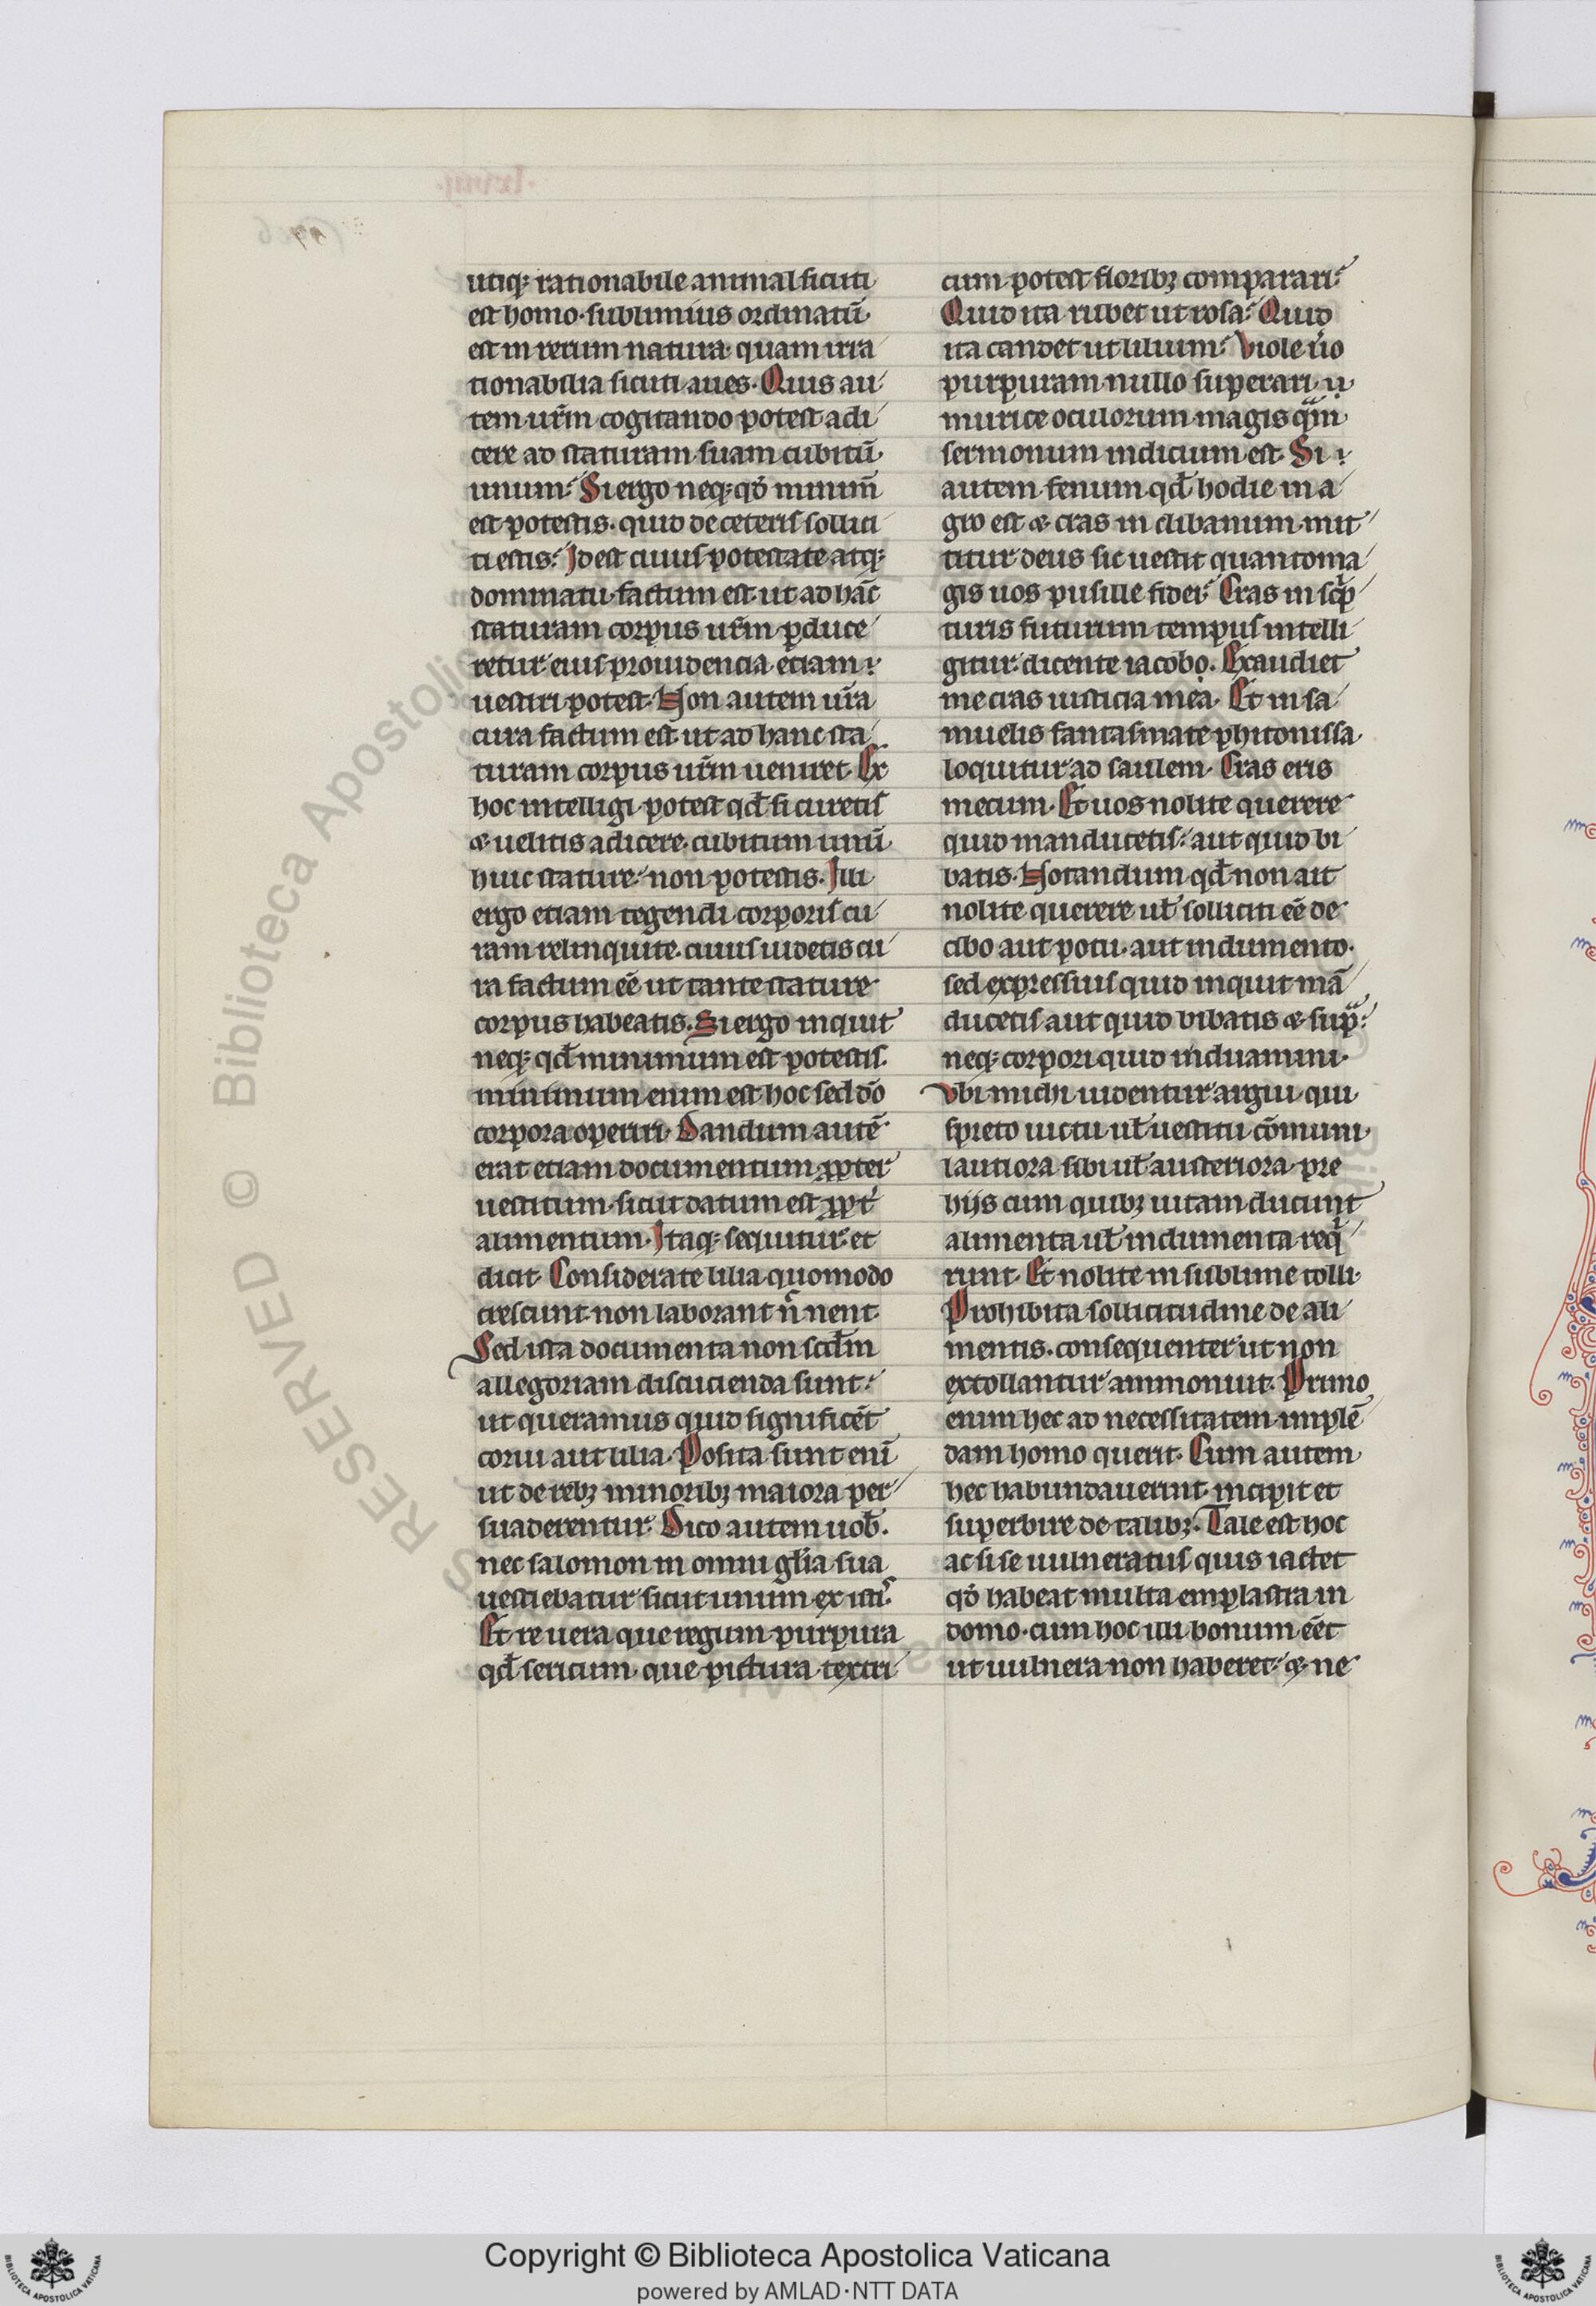 utiq; rationabile animal sicuti
est homo · sublimius ordinatū
est in rerum natura · quam irra
tionabilia sicuti aues · Quis au
tem ur̄m cogitando potest adi
cere ad staturam suam cubitū
unum? Si ergo neq; qd̄ minim̄
est potestis · quid de ceteris sollici
ti estis? Id est cuius potestate atq;
dominatu factum est ut ad hāc
staturam corpus ur̄m ꝑduce
retur eius prouidencia etiam
uestiri potest · Non autem ur̄a
cura factum est ut ad hanc sta
turam corpus ur̄m ueniret · Ex
hoc intelligi potest qd̄ si curetis
& uelitis adicere cubitum unū
huic stature · non potestis · Illi
ergo etiam tegendi corporis cu
ram relinquite · cuius uidetis cu
ra factum eē ut tante stature
corpus habeatis · Si ergo inquit
neq; qd̄ minimum est potestis
minimum enim est hoc sed dō
corpora operiri · Dandum autē
erat etiam documentum ꝓpter
uestitum · sicut datum est ꝓpt̄
alimentum · Itaq; sequitur et
dicit · Considerate lilia quomodo
crescunt · non laborant n̄ nent
Sed ista documenta non scd̄m
allegoriam discutienda sunt ·
ut queramus quid significēt
corui aut lilia · Posita sunt enī
ut de rebꝫ minoribꝫ maiora per
suaderentur · Dico autem uob̄ ·
nec salomon in omni gl̄ia sua
uestiebatur sicut unum ex istis
Et re uera que regum purpura
qd̄ sericum que pictura textri
cum potest floribꝫ comparari?
Quid ita rubet ut rosa? Quid
ita candet ut lilium? Viole ūo
purpuram nullo superari
murice oculorum magis qᵃm
sermonum indicium est · Si
autem fenum qd̄ hodie in a
gro est & cras in clibanum mit
titur deus sic uestit quanto ma
gis uos pusille fidei? Cras in scp̄
turis futurum tempus intelli
gitur · dicente iacobo · Exaudiet
me cras iusticia mea · Et in sa
muelis fantasmate phitonissa
loquitur ad saulem · Cras eris
mecum · Et uos nolite querere
quid manducetis · aut quid bi
batis · Notandum qd̄ non ait
nolite querere ul̄ solliciti eē de
cibo aut potu · aut indumento ·
sed expressius quid inquit mā
ducetis aut quid bibatis & supᵃ ·
neq; corpori quid induamini ·
Vbi michi uidentur argui qui
spreto uictu ul̄ uestitu cōmuni
lautiora sibi ul̄ austeriora pre
hijs cum quibꝫ uitam ducunt
alimenta ul̄ indumenta reqⁱ
runt · Et nolite in sublime tolli ·
Prohibita sollicitudine de ali
mentis · consequenter ut non
extollantur ammonuit · Primo
enim hec ad necessitatem implē
dam homo querit · Cum autem
hec habundauerint incipit et
superbire de talibꝫ · Tale est hoc
ac si se uulneratus quis iactet
qd̄ habeat multa emplastra in
domo · cum hoc illi bonum eēt
ut uulnera non haberet · & ne
RESERVED © Biblioteca Apostolica
Copyright © Biblioteca Apostolica Vaticana
powered by AMLAD·NTT DATA